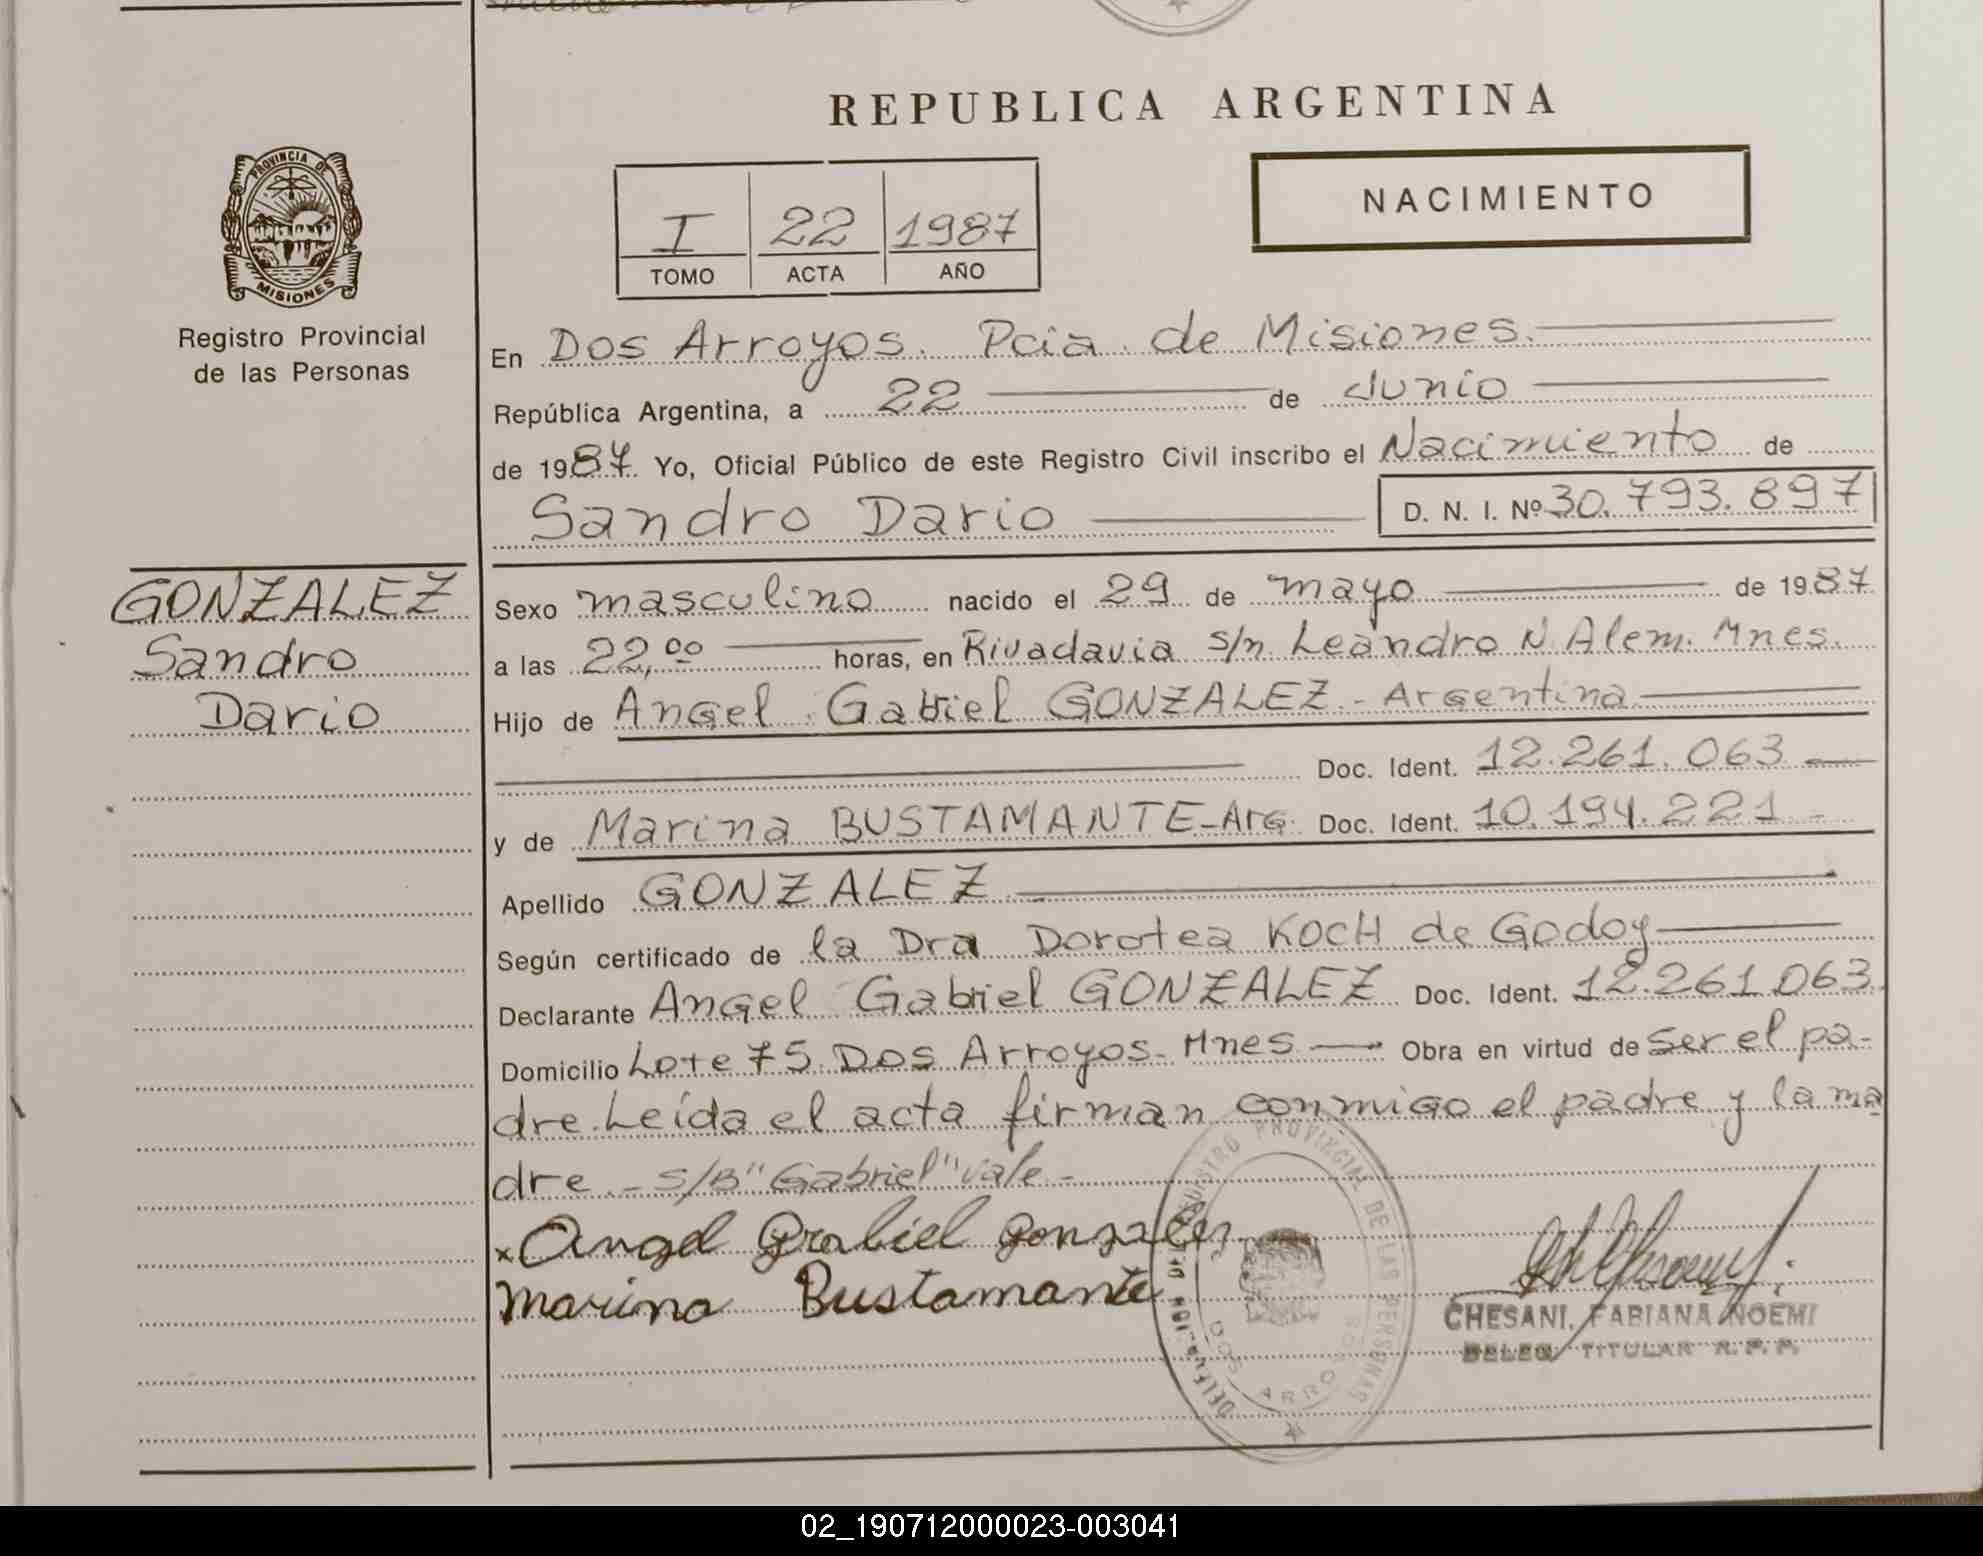 REPUBLICA ARGENTINA
NACIMIENTO
I 22 1987
TOMO ACTA AÑO
PROVINCIA DE
MISIONES
Registro Provincial
de las Personas
En Dos Arroyos. Pcia. de Misiones.
República Argentina, a 22 de Junio
de 1987. Yo, Oficial Público de este Registro Civil inscribo el Nacimiento de
Sandro Dario D. N. I. Nº 30.793.897
GONZALEZ
Sandro
Dario
Sexo masculino nacido el 29 de mayo de 1987
a las 22,00 horas, en Rivadavia s/n Leandro N. Alem. Mnes.
Hijo de Angel Gabriel GONZALEZ - Argentina
Doc. Ident. 12.261.063
y de Marina BUSTAMANTE-Arg. Doc. Ident. 10.194.221-
Apellido GONZALEZ
Según certificado de la Dra Dorotea KOCH de Godoy
Declarante Angel Gabriel GONZALEZ Doc. Ident. 12.261.063
Domicilio Lote 75. Dos Arroyos- Mnes Obra en virtud de ser el pa-
dre. Leída el acta firman conmigo el padre y la ma
dre - s/B "Gabriel" vale -
x Angel Grabiel Gonzalez
Marina Bustamante
REGISTRO PROVINCIAL DE LAS PERSONAS
DOS ARROYOS
CHESANI, FABIANA NOEMI
DELEG. TITULAR R. P. P.
02_190712000023-003041